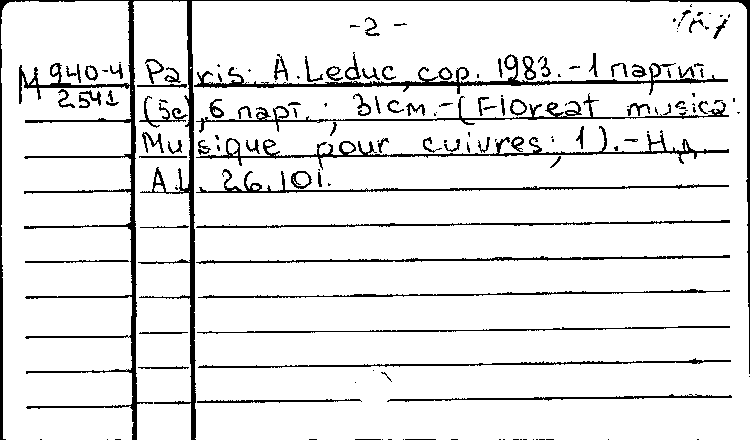 -2-
М 940-4 Paris: A.Leduc, cop. 1983.-1 партит.
2541 (5с), 6 парт.; 31см.-(Floreat musica:
Musique pour cuivres; 1).-Н.д.
A.L. 26.101.